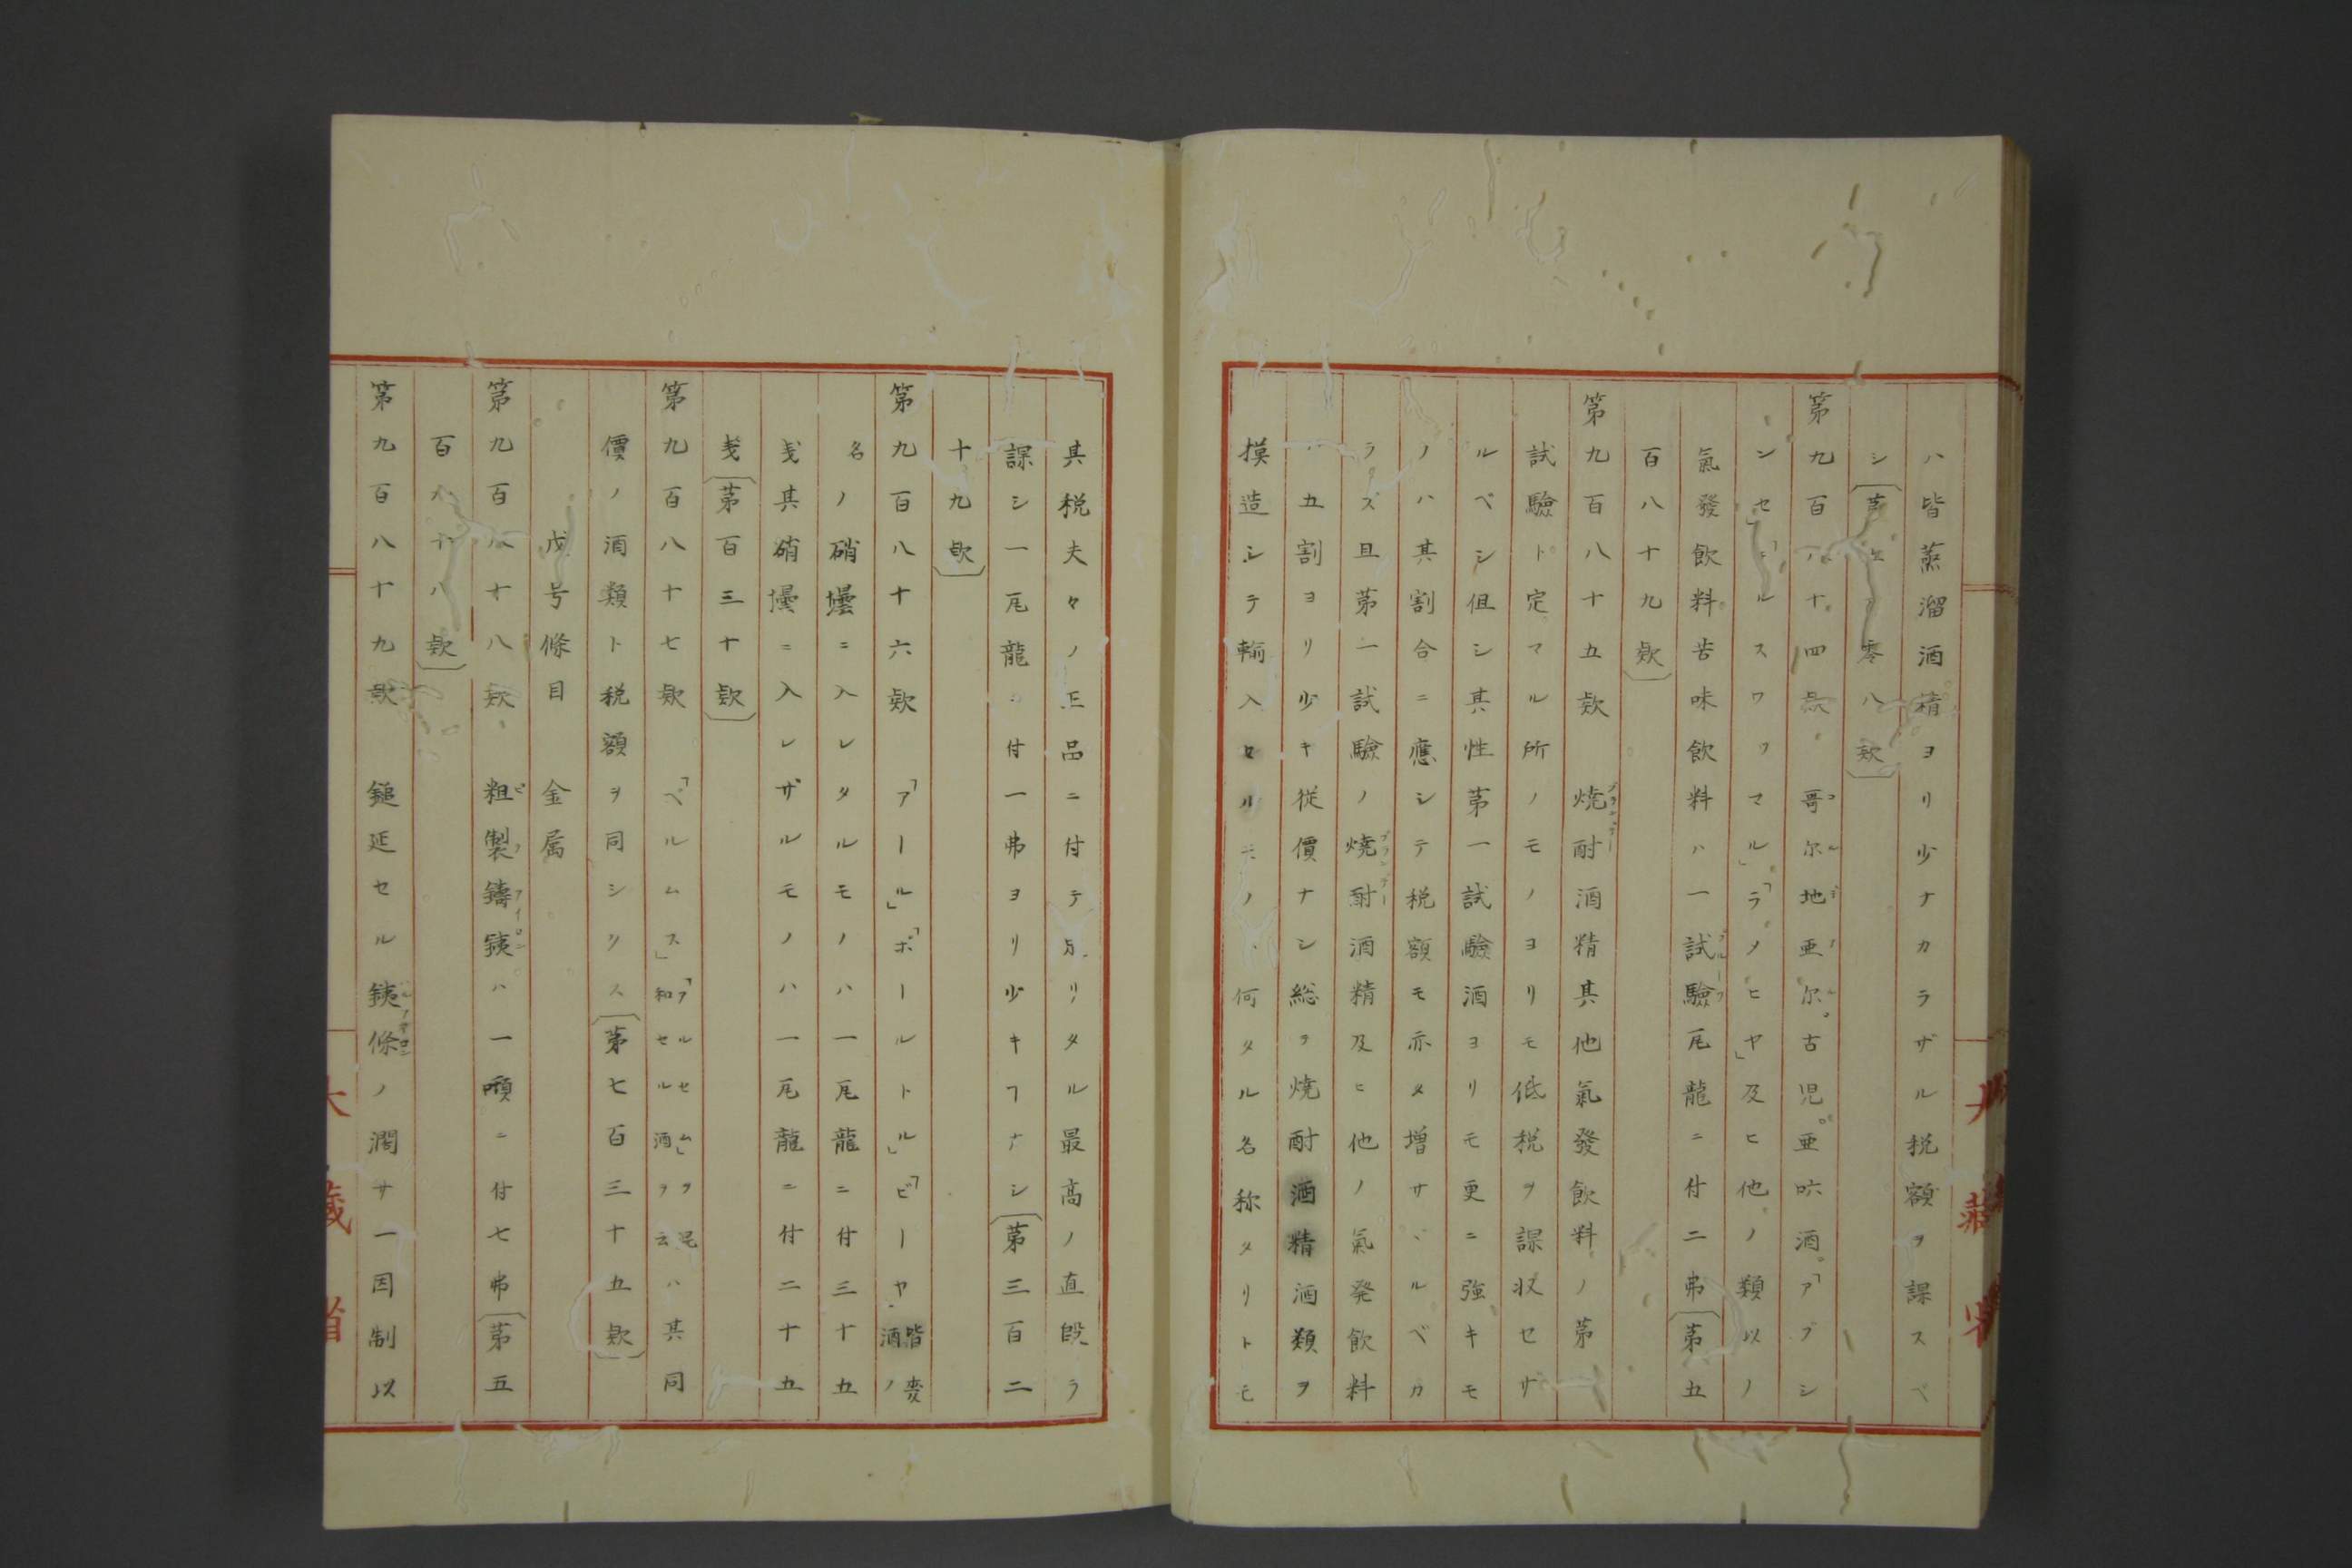 ハ皆蒸溜酒精ヨリ少ナカラザル税額ヲ課スベ
シ〔零八欵〕
第九百八十四欵 哥尓地亜尓。古児。亜吤酒。「アブシ
ンセ」「ルスワツマル」「ラノヒヤ」及ヒ他ノ類以ノ
氣發飲料苦味飲料ハ一試驗瓦龍ニ付二弗〔第五
百八十九欵〕
第九百八十五欵 焼酎酒精其他氣發飲料ノ第
試驗ト定マル所ノモノヨリモ低税ヲ課収セザ
ルベシ伹シ其性第一試驗酒ヨリモ更ニ強キモ
ノハ其割合ニ應シテ税額モ亦タ増サヾルベカ
ラズ且第一試驗ノ焼酎酒精及ヒ他ノ氣発飲料
五割ヨリ少キ從價ナシ総テ焼酎酒精酒類ヲ
摸造シテ輸入セルモノハ何タル名称タリトモ
其税夫々ノ正品ニ付テ定リタル最高ノ直段ヲ
課シ一瓦龍ニ付一弗ヨリ少キヿナシ〔第三百二
十九欵〕
第九百八十六欵 「アール」「ポールトル」「ビーヤ皆麥酒ノ
名ノ硝壜ニ入レタルモノハ一瓦龍ニ付三十五
戔其硝壜ニ入レザルモノハ一瓦龍ニ付二十五
戔〔第百三十欵〕
第九百八十七欵 「ベルムス」「アルセム」ヲ混和セル酒ヲ云ハ其同
價ノ酒類ト税額ヲ同シクス〔第七百三十五欵〕
戊号條目 金属
第九百八十八欵 粗製鑄銕ハ一噸ニ付七弗〔第五
百八十八欵〕
第九百八十九欵 鎚延セル銕條ノ濶サ一因制以
大藏省